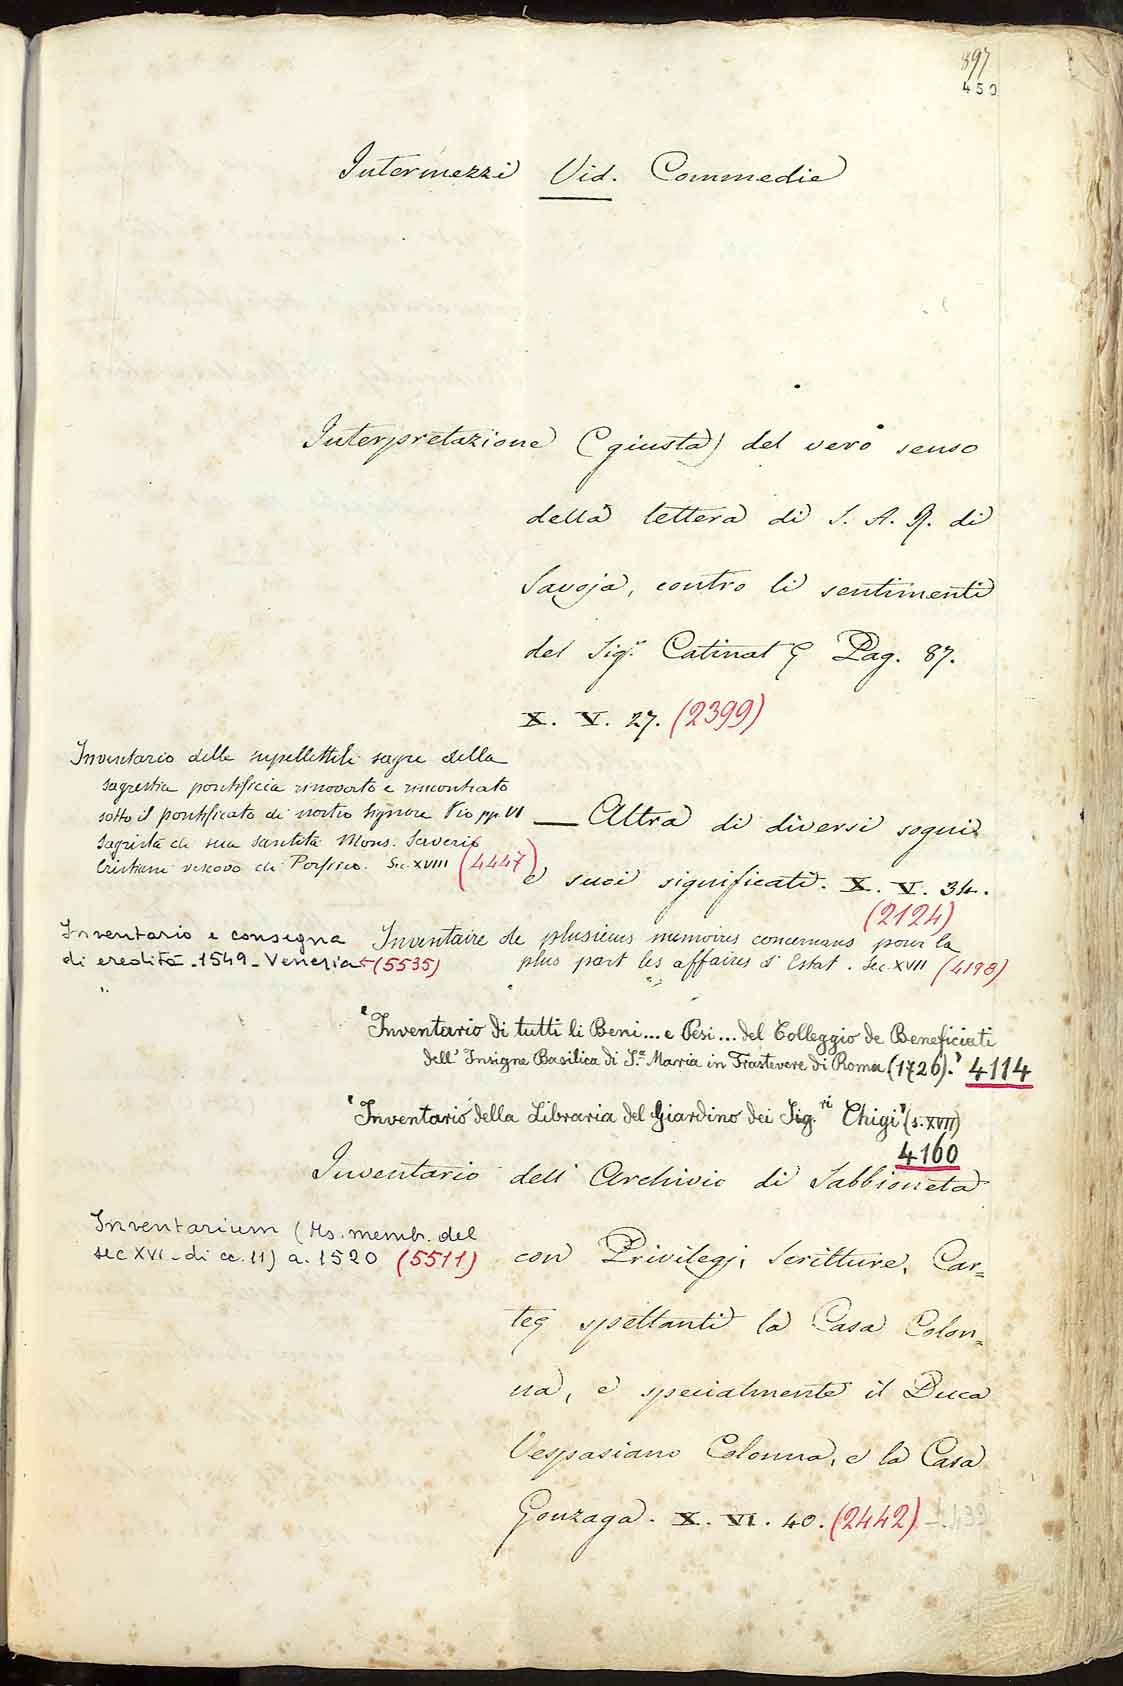 897
450
Intermezzi Vid. Commedie
Interpretazione (giusta) del vero senso
della lettera di S. A. R. di
Savoja, contro li sentimenti
del Sigr. Catinat Pag. 87.
X. V. 27. (2399)
Inventario delle supellettili sagre della
sagrestia pontificia rinovato e rincontrato
sotto il pontificato di nostro Signore Pio pp. VI
Sagrista di sua santità Mons. Saverio
Cristiani vescovo di Porfirio. Sec. XVIII (4447)
— Altra di diversi sogni
e suoi significati. X. V. 34.
(2124)
Inventario e consegna
di eredità - 1549 - Venezia - (5535)
Inventaire de plusieurs memoires concernans pour la
plus part les affaires d'Estat. Sec. XVII (4198)
"Inventario di tutti li Beni... e Pesi... del Colleggio de Beneficiati
dell'Insigne Basilica di S.a Maria in Trastevere di Roma (1726)." 4114
"Inventario della Libraria del Giardino dei Sig.ri Chigi" (s. XVII)
4160
Inventario dell'Archivio di Sabbioneta
Inventarium (Ms. membr. del
sec XVI - di cc. 11) a. 1520 (5511)
con Privilegj, Scritture, Car=
teg spettanti la Casa Colon=
na, e specialmente il Duca
Vespasiano Colonna, e la Casa
Gonzaga. X. VI. 40. (2442)